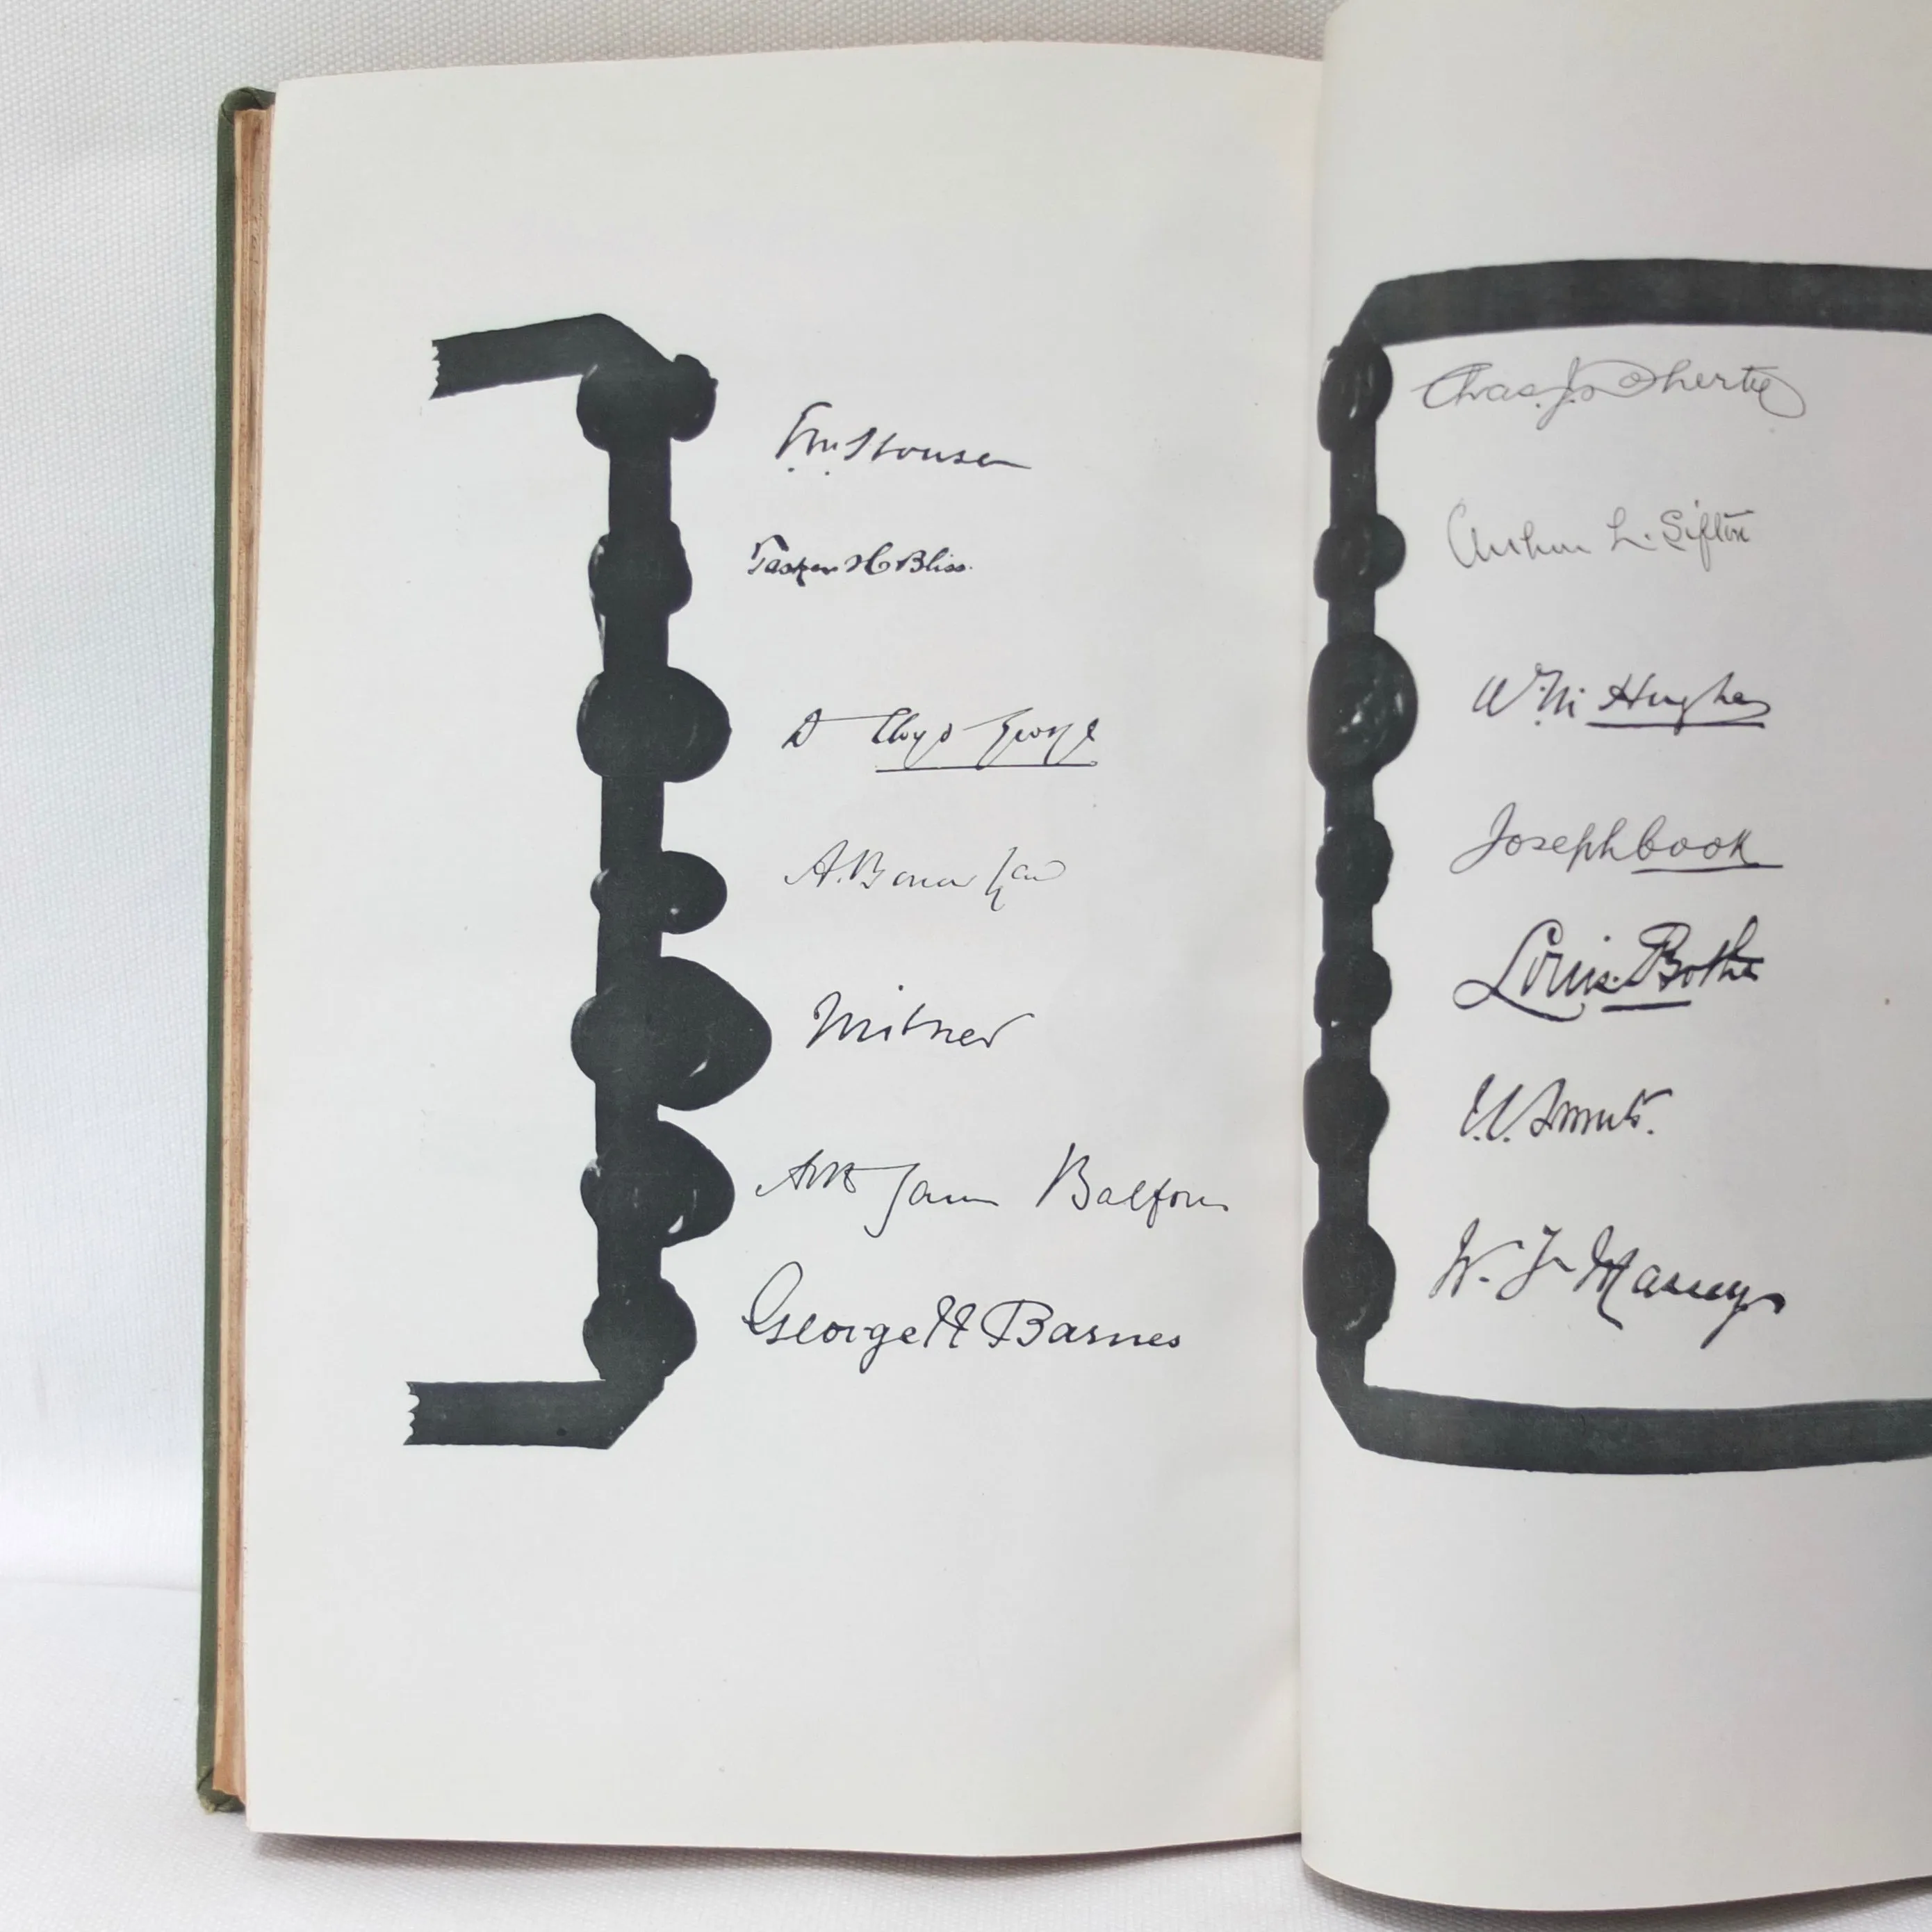 E.M. House
Tasker H Bliss.
D Lloyd George
A. Bonar Law
Milner
Arth James Balfour
George N Barnes
Chas. J. Doherty
Arthur L. Sifton
W. M. Hughes
Joseph Cook
Louis Botha
J.C. Smuts.
W. F. Massey